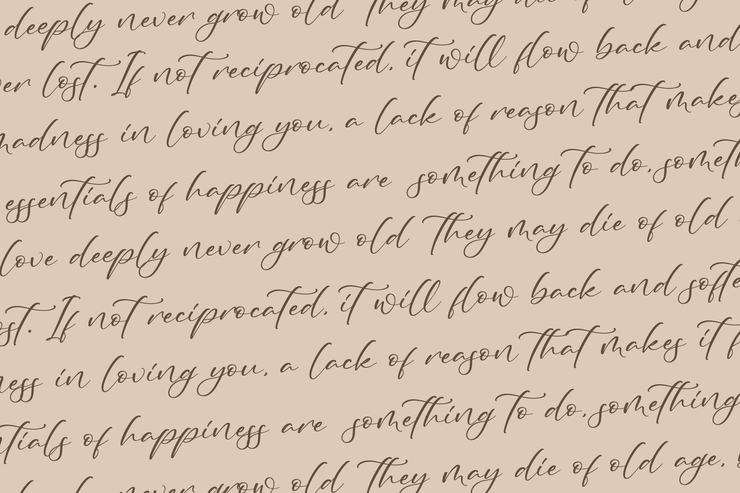 deeply never grow old They may die
lost. If not reciprocated, it will flow back and
madness in loving you, a lack of reason that makes
essentials of happiness are something to do, someth
love deeply never grow old They may die of old
ost. If not reciprocated, it will flow back and softe
ness in loving you, a lack of reason that makes it f
ntials of happiness are something to do, something
never grow old They may die of old age,